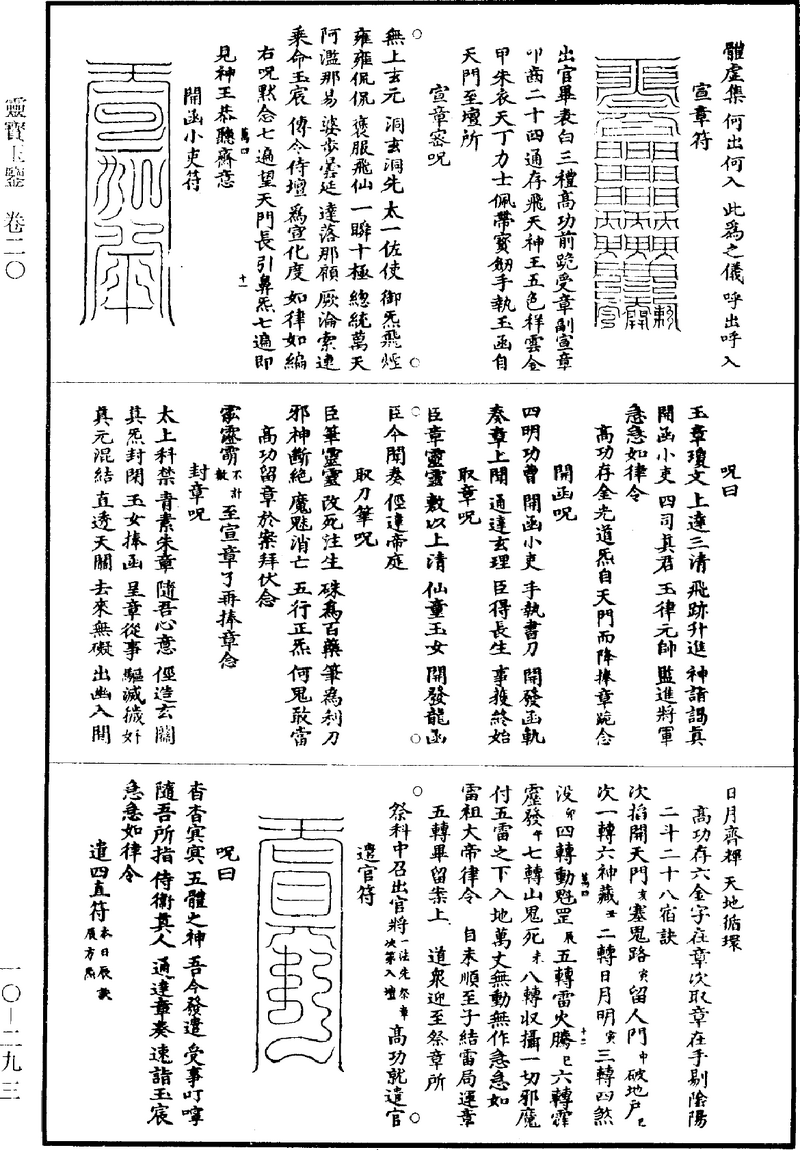 體虛集 何出何入 此爲之儀 呼出呼入
宣章符
出官畢表白三禮高功前跪受章副宣章
叩齒二十四通存飛天神王五色祥雲金
甲朱衣天丁力士佩帶寶劒手執玉函自
天門至壇所
宣章密呪
無上玄元 洞玄洞先 太一佐使 御炁飛煙
雍雍侃侃 褒服飛仙 一睜十極 總統萬天
阿濫那易 婆步曇延 達落那顏 厥淪索遠
乘命玉宸 傳令侍壇 爲宣化度 如律如編
右呪默念七遍望天門長引鼻炁七遍即
萬四
十一
見神王恭聽齋意
開函小吏符
呪曰
玉章瓊文 上達三清 飛跡升進 神請謁真
開函小吏 四司真君 玉律元帥 監進將軍
急急如律令
高功存金光道炁自天門而降捧章跪念
開函呪
四明功曹 開函小吏 手執書刀 開發函執
奏章上聞 通達玄理 臣得長生 事獲終始
取章呪
臣章靈靈 敷以上清 仙童玉女 開發龍函
臣今開奏 俓達帝庭
取刀筆呪
臣筆靈靈 改死注生 硃爲百藥 筆爲利刀
邪神斷絶 魔魅消亡 五行正炁 何鬼敢當
高功留章於案拜伏念
不計數 至宣章了再捧章念
封章呪
太上科禁 青素朱章 隨吾心意 俓造玄關
真炁封閉 玉女捧函 呈章從事 驅滅穢奸
真元混結 直透天關 去來無礙 出幽入開
日月齊禪 天地循環
高功存六金字在章次取章在手剔陰陽
二斗二十八宿訣
次掐開天門亥塞鬼路寅留人門申破地戶巳
次一轉六神藏丑二轉日月明寅三轉四煞
没卯四轉動魁罡辰五轉雷火騰巳六轉霹
靂發午七轉山鬼死未八轉収攝一切邪魔
萬四
十二
付五雷之下入地萬丈無動無作急急如
雷祖大帝律令 自未順至子結雷局運章
五轉畢留案上 道衆迎至祭章所
祭科中召出官將一法先祭章次第入壇高功就遣官
遣官符
呪曰
杳杳冥冥 五體之神 吾今發遣 受事叮嚀
隨吾所指 侍衛真人 通達章奏 速詣玉宸
急急如律令
遣四直符本日辰訣
靈寶玉鑒 卷二〇
一〇—二九三